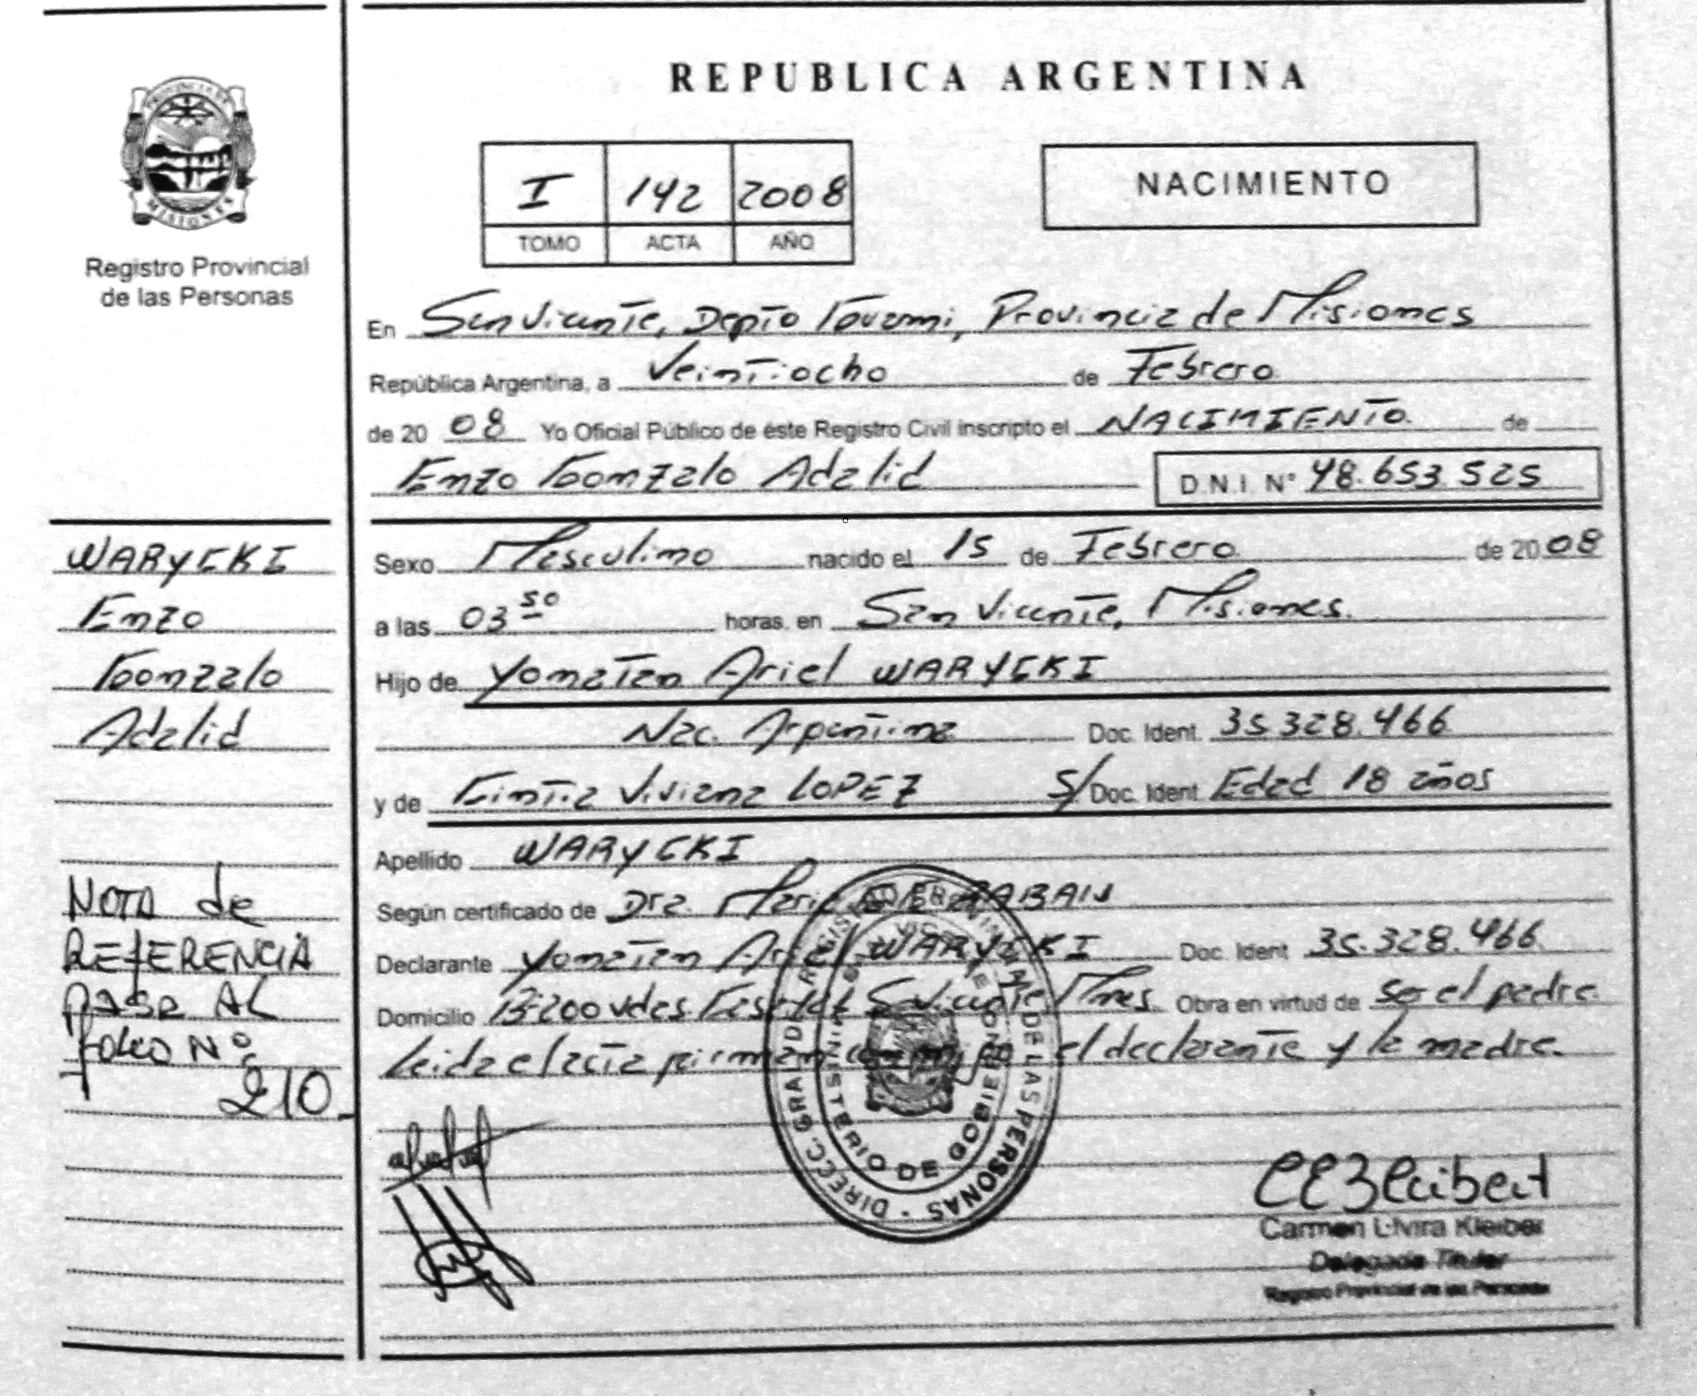 REPUBLICA ARGENTINA
PROVINCIA DE
MISIONES
Registro Provincial
de las Personas
I 142 2008
TOMO ACTA AÑO
NACIMIENTO
En San Vicente, Depto Guarani, Provincia de Misiones
República Argentina, a Veintiocho de Febrero
de 20 08 Yo Oficial Público de éste Registro Civil inscripto el NACIMIENTO de
Enzo Gonzalo Adalid D.N.I. N° 48.653.525
Sexo Masculino nacido el 15 de Febrero de 20 08
a las 03 50 horas. en San Vicente, Misiones.
Hijo de Yonatan Ariel WARYCKI
Nac. Argentina Doc. Ident. 35.328.466
y de Cintia Viviana LOPEZ S/Doc. Ident Edad 18 años
Apellido WARYCKI
Según certificado de Dra.
Declarante Yonatan Ariel WARYCKI Doc. Ident 35.328.466
Domicilio Obra en virtud de ser el padre
Leida el acta firman el declarante y la madre.
WARYCKI
Enzo
Gonzalo
Adalid
NOTA de
REFERENCIA
PASA AL
folio N°
210.
DIRECC. GRAL. DEL REGISTRO PROVINCIAL DE LAS PERSONAS
MINISTERIO DE GOBIERNO
Carmen Elvira Kleiber
Delegada Titular
Registro Provincial de las Personas